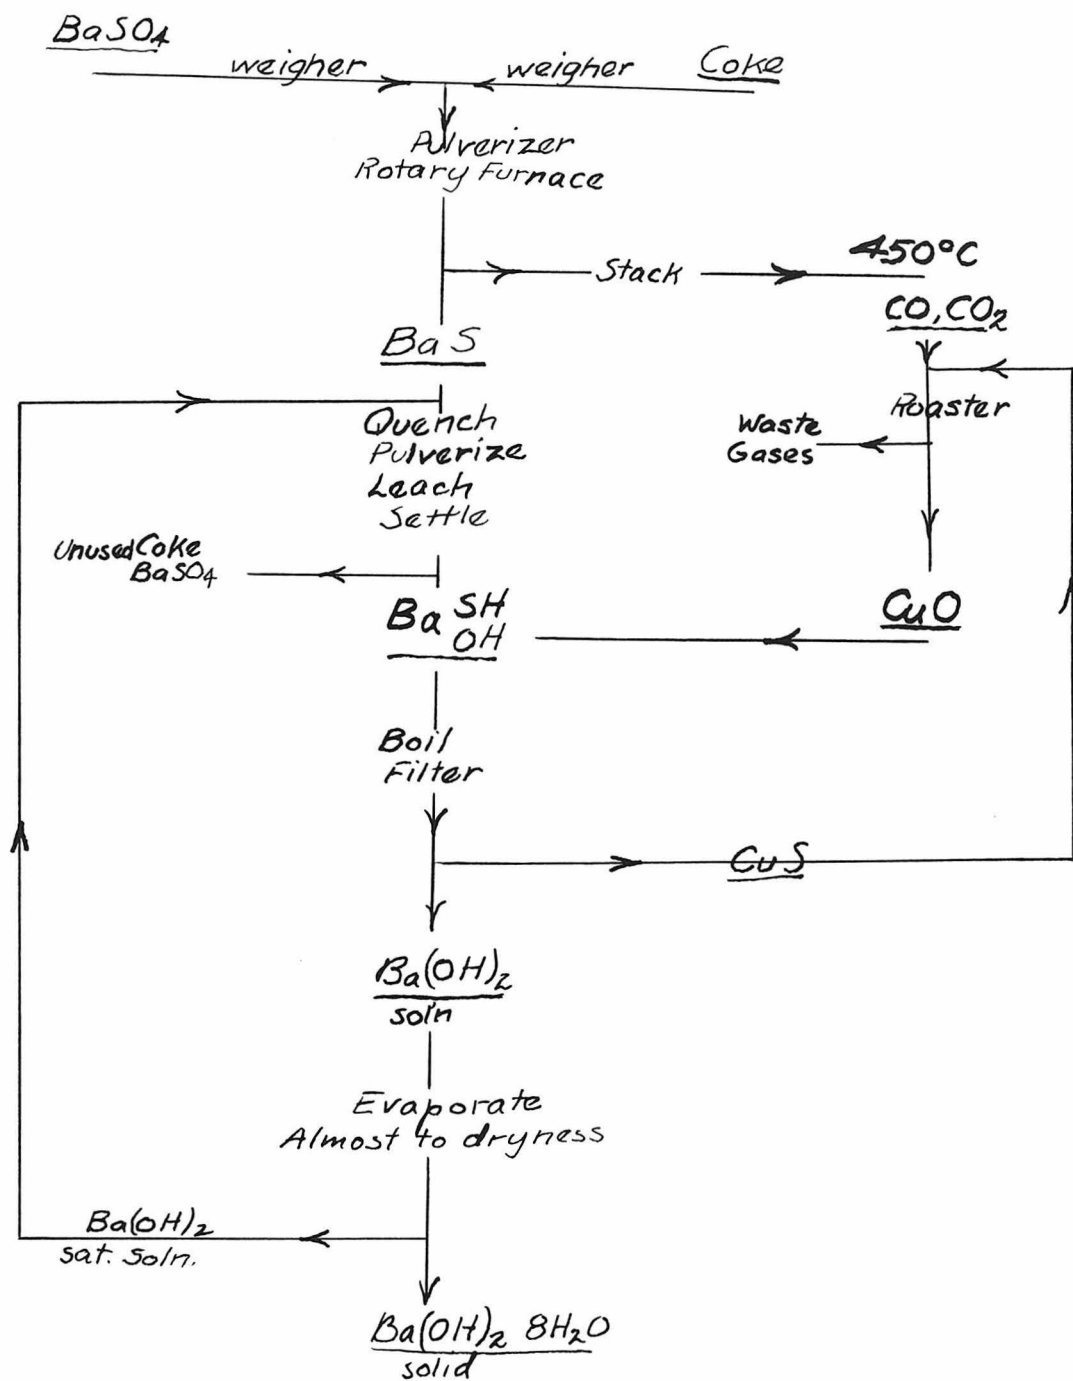 BaSO₄
weigher
weigher
Coke
Pulverizer
Rotary Furnace
Stack
450°C
CO, CO₂
BaS
Roaster
Waste
Gases
Quench
Pulverize
Leach
Settle
Unused Coke
BaSO₄
Ba SH
OH
CuO
Boil
Filter
CuS
Ba(OH)₂
soln
Evaporate
Almost to dryness
Ba(OH)₂
sat. soln.
Ba(OH)₂ 8H₂O
solid